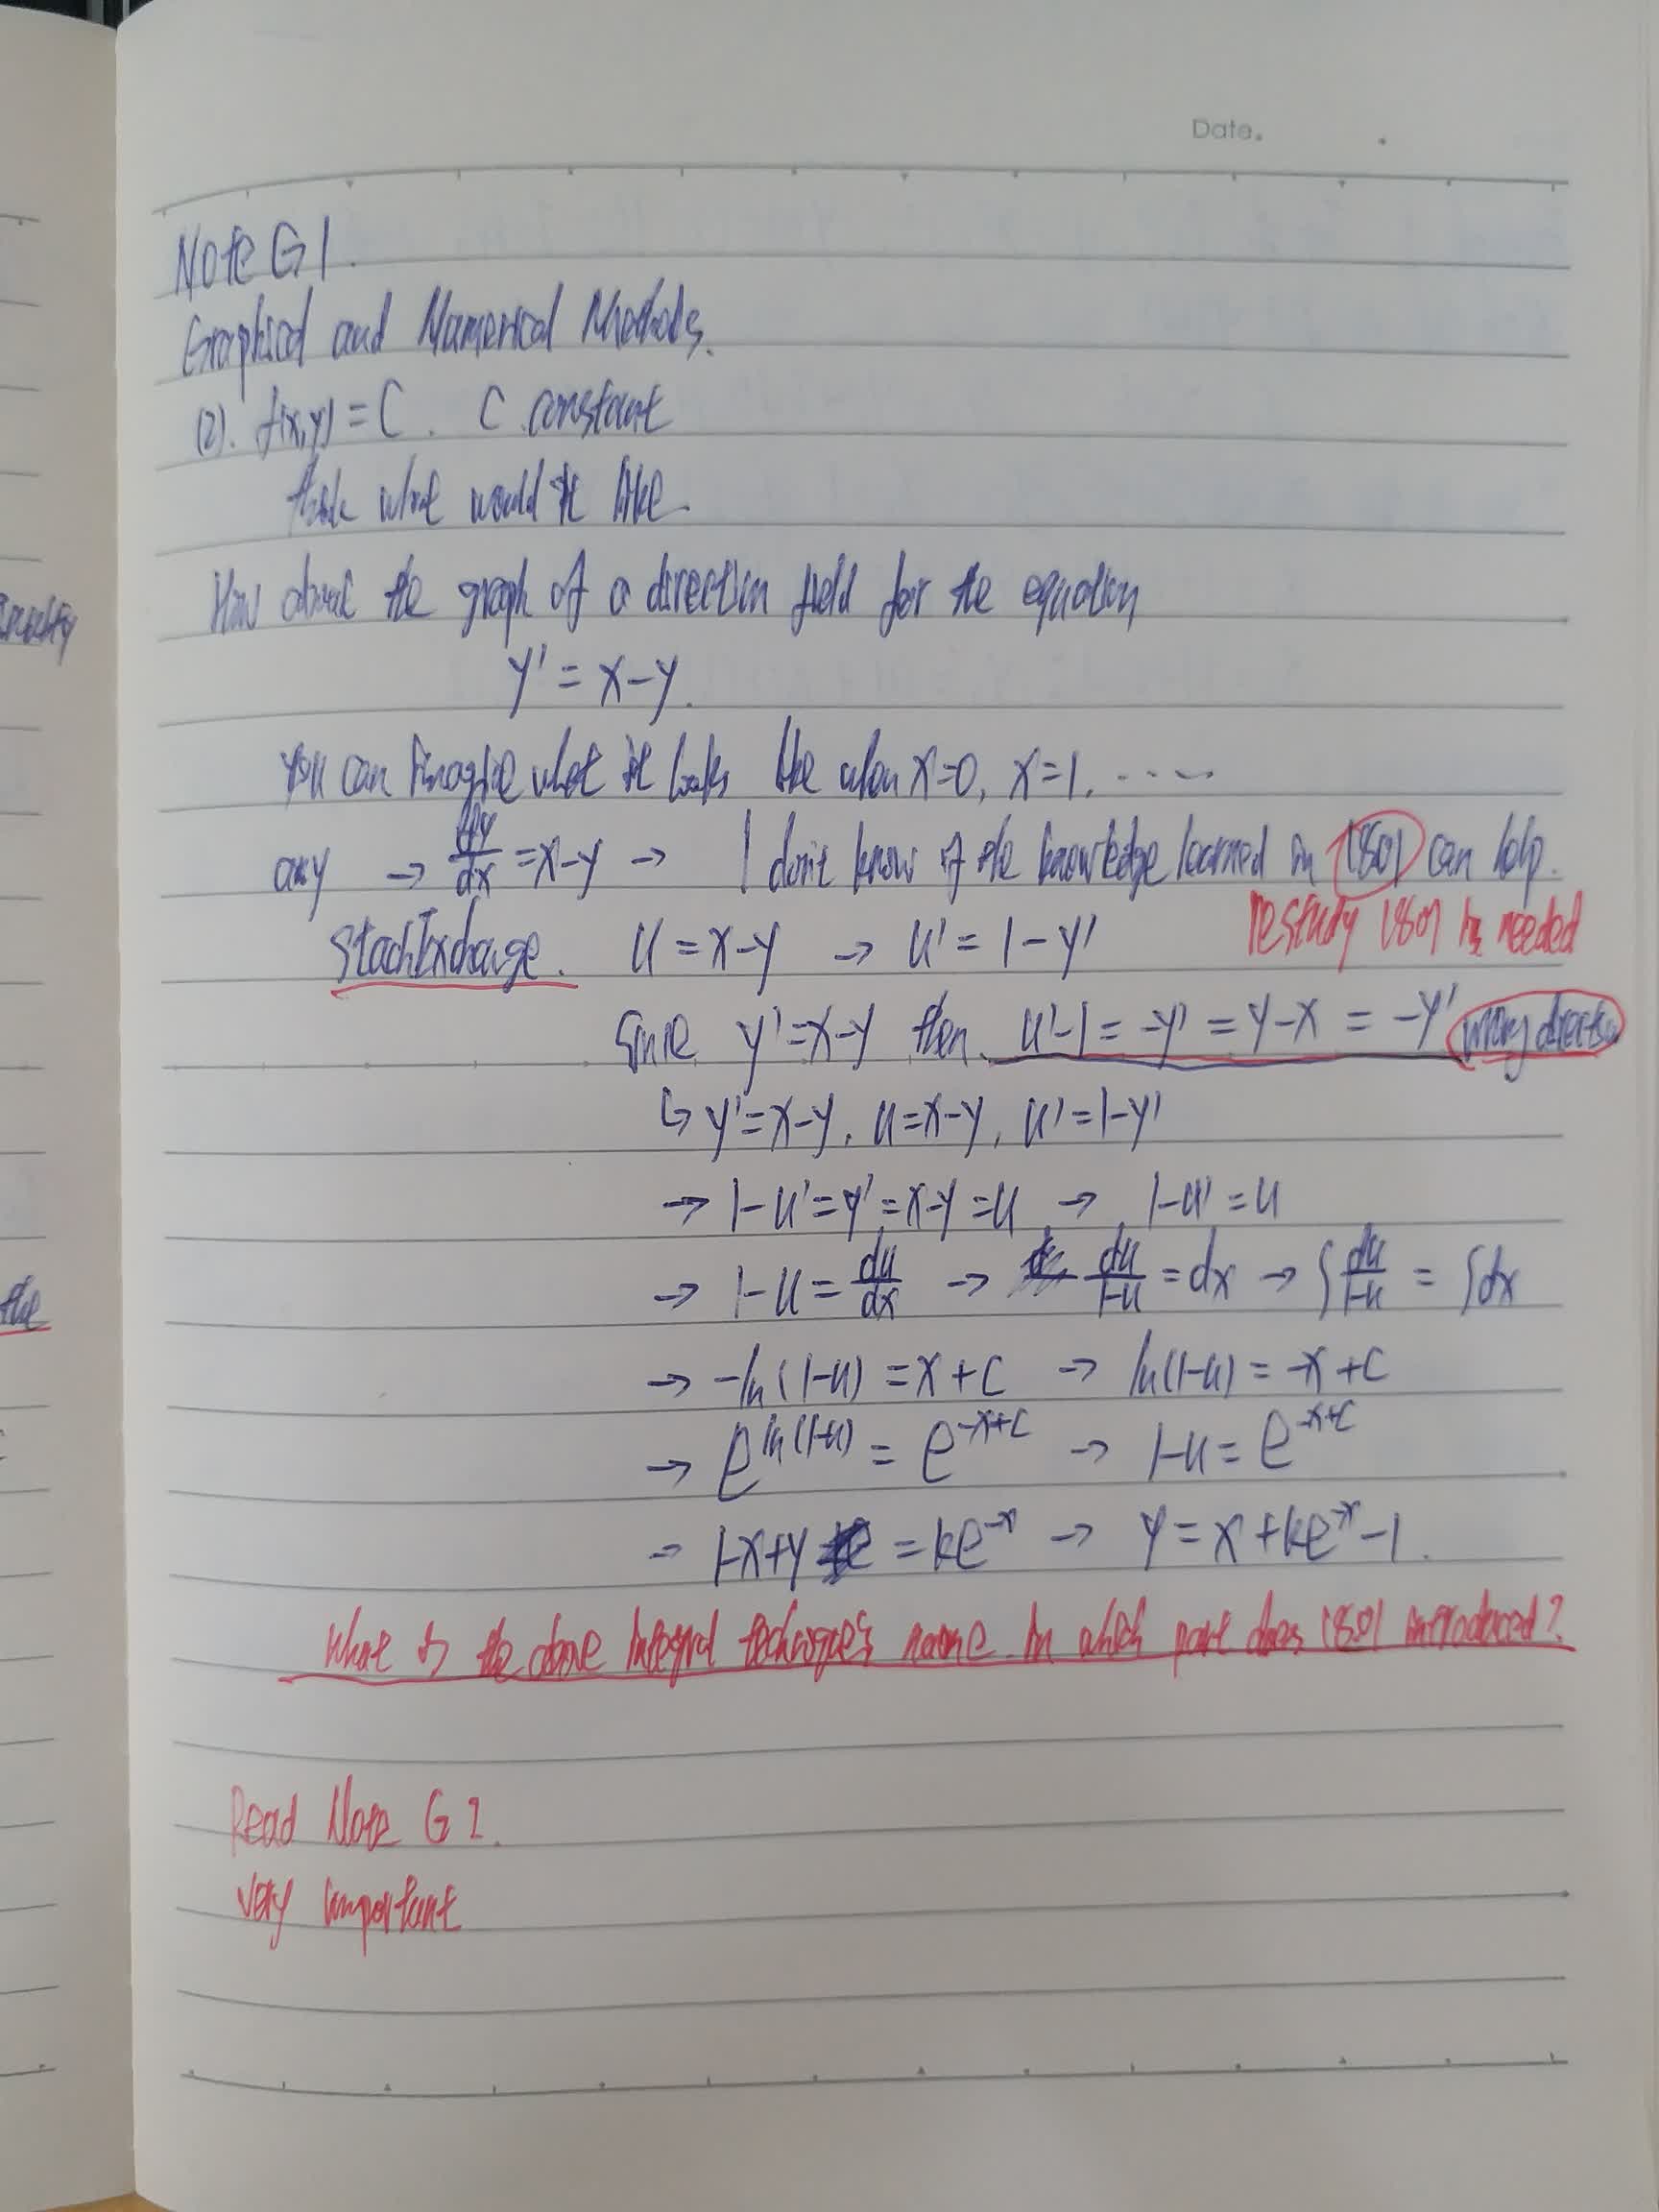 Date.
Note G1.
Graphical and Numerical Methods.
(2). f(x,y) = C. C constant
think what would it like.
How about the graph of a direction field for the equation
y' = x-y.
You can imagine what it looks like when x=0, x=1, .....
→ dy/dx = x-y → I don't know if the knowledge learned in 1801 can help.
restudy 1801 is needed
StackExchange. u = x-y → u' = 1-y'
Since y'=x-y then u'-1 = -y' = y-x = -y' wrong direction
↳ y'=x-y, u=x-y, u'=1-y'
→ 1-u'=y'=x-y=u → 1-u'=u
→ 1-u = du/dx → du/1-u = dx → ∫ du/1-u = ∫dx
→ -ln(1-u) = x+c → ln(1-u) = -x+c
→ e^ln(1-u) = e^-x+c → 1-u = e^-x+c
→ 1-x+y = ke^-x → y = x+ke^-x-1.
What is the above integral technique's name. In which part does 1801 introduced?
Read Note G 2.
very important
the